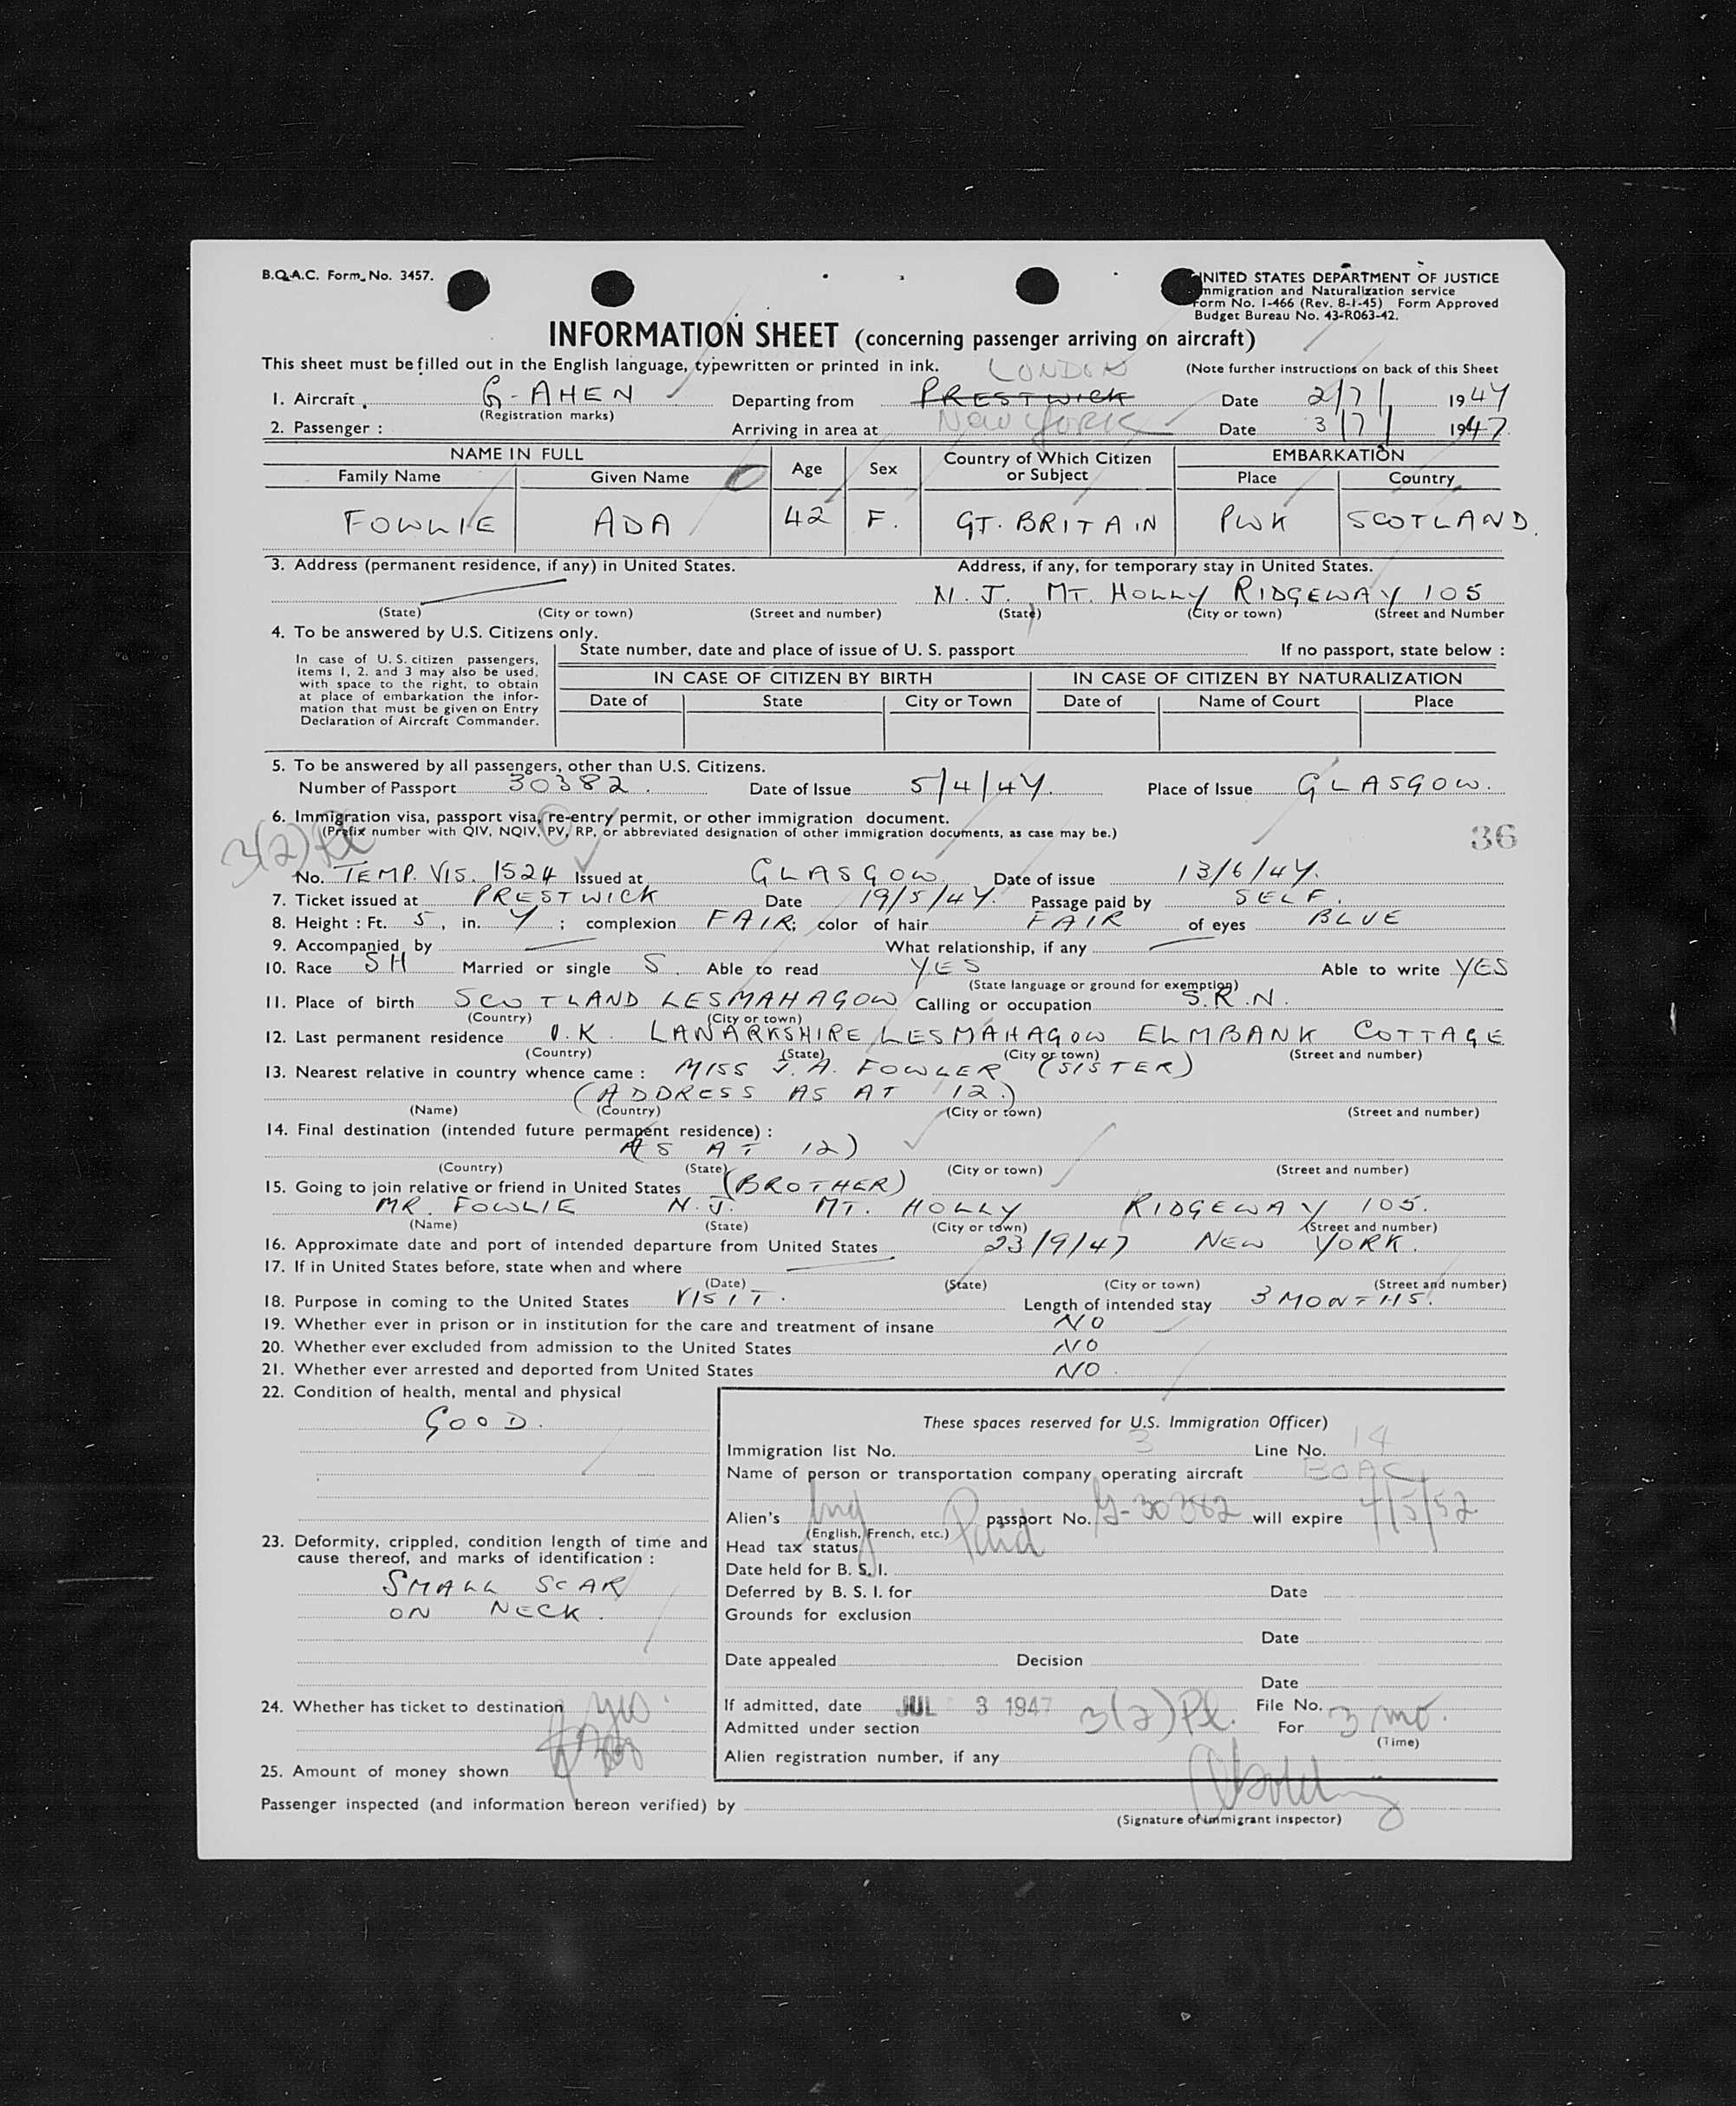 B.O.A.C. Form No. 3457.
UNITED STATES DEPARTMENT OF JUSTICE
Immigration and Naturalization service
Form No. I-466 (Rev. 8-1-45) Form Approved
Budget Bureau No. 43-R063-42.
INFORMATION SHEET (concerning passenger arriving on aircraft)
This sheet must be filled out in the English language, typewritten or printed in ink. (Note further instructions on back of this Sheet
LONDON
1. Aircraft G-AHEN Departing from PRESTWICK Date 2/7/ 1947
(Registration marks)
2. Passenger : Arriving in area at New York Date 3/7/ 1947
NAME IN FULL Age Sex Country of Which Citizen or Subject EMBARKATION
Family Name Given Name Place Country
FOWLIE ADA 42 F. GT. BRITAIN PWK SCOTLAND.
3. Address (permanent residence, if any) in United States. Address, if any, for temporary stay in United States.
N. J. MT. HOLLY RIDGEWAY 105
(State) (City or town) (Street and number) (State) (City or town) (Street and Number
4. To be answered by U.S. Citizens only.
In case of U.S. citizen passengers,
items 1, 2, and 3 may also be used,
with space to the right, to obtain
at place of embarkation the infor-
mation that must be given on Entry
Declaration of Aircraft Commander.
State number, date and place of issue of U. S. passport If no passport, state below :
IN CASE OF CITIZEN BY BIRTH IN CASE OF CITIZEN BY NATURALIZATION
Date of State City or Town Date of Name of Court Place
5. To be answered by all passengers, other than U.S. Citizens.
Number of Passport 30382. Date of Issue 5/4/47. Place of Issue GLASGOW.
6. Immigration visa, passport visa, re-entry permit, or other immigration document.
(Prefix number with QIV, NQIV, PV, RP, or abbreviated designation of other immigration documents, as case may be.)
36
3(2) Pl
No. TEMP. VIS. 1524 Issued at GLASGOW Date of issue 13/6/47.
7. Ticket issued at PRESTWICK Date 19/5/47. Passage paid by SELF.
8. Height : Ft. 5, in. 7 ; complexion FAIR; color of hair FAIR of eyes BLUE
9. Accompanied by What relationship, if any
10. Race SH Married or single S. Able to read YES Able to write YES
(State language or ground for exemption)
11. Place of birth SCOTLAND LESMAHAGOW Calling or occupation S.R.N.
(Country) (City or town)
12. Last permanent residence U.K. LANARKSHIRE LESMAHAGOW ELMBANK COTTAGE
(Country) (State) (City or town) (Street and number)
13. Nearest relative in country whence came : MISS J. A. FOWLER (SISTER)
(ADDRESS AS AT 12.)
(Name) (Country) (City or town) (Street and number)
14. Final destination (intended future permanent residence) :
(AS AT 12)
(Country) (State) (City or town) (Street and number)
15. Going to join relative or friend in United States (BROTHER)
MR. FOWLIE N. J. MT. HOLLY RIDGEWAY 105.
(Name) (State) (City or town) (Street and number)
16. Approximate date and port of intended departure from United States 23/9/47 NEW YORK.
17. If in United States before, state when and where
(Date) (State) (City or town) (Street and number)
18. Purpose in coming to the United States VISIT. Length of intended stay 3 MONTHS.
19. Whether ever in prison or in institution for the care and treatment of insane NO
20. Whether ever excluded from admission to the United States NO
21. Whether ever arrested and deported from United States NO.
22. Condition of health, mental and physical
GOOD.
23. Deformity, crippled, condition length of time and
cause thereof, and marks of identification :
SMALL SCAR
ON NECK.
24. Whether has ticket to destination yes
25. Amount of money shown
These spaces reserved for U.S. Immigration Officer)
Immigration list No. 3 Line No. 14
Name of person or transportation company operating aircraft BOAC
Alien's Eng passport No. G-30382 will expire 4/5/52
(English, French, etc.)
Head tax status Paid
Date held for B. S. I.
Deferred by B. S. I. for Date
Grounds for exclusion
Date
Date appealed Decision
Date
If admitted, date JUL 3 1947 File No.
Admitted under section 3(2) Pl. For 3 mo.
(Time)
Alien registration number, if any
Passenger inspected (and information hereon verified) by
(Signature of immigrant inspector)